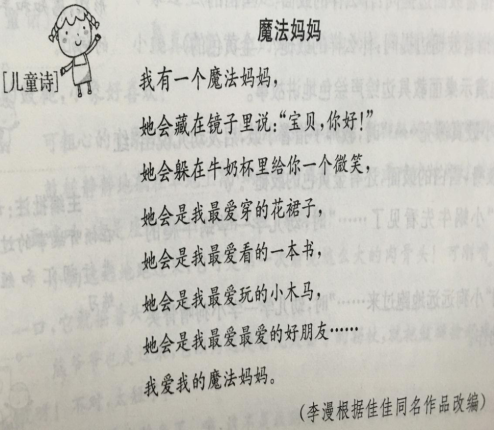 魔法妈妈
[儿童诗]
我有一个魔法妈妈，
她会藏在镜子里说：“宝贝，你好！”
她会躲在牛奶杯里给你一个微笑，
她会是我最爱穿的花裙子，
她会是我最爱看的一本书，
她会是我最爱玩的小木马，
她会是我最爱最爱的好朋友……
我爱我的魔法妈妈。
(李漫根据佳佳同名作品改编)